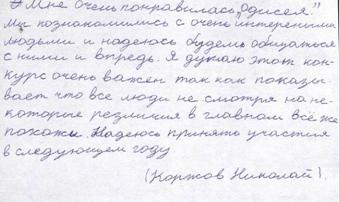 Мне очень понравилась "Одисея"
Мы познакомились с очень интересними
людьми и надеюсь будем общаться
с ними и впредь. Я думаю этот кон-
курс очень важен так как показы-
вает что все люди не смотря на не-
которые резличия в главном всё же
похожи. Надеюсь принять участия
в следующем году.
(Коржов Николай).